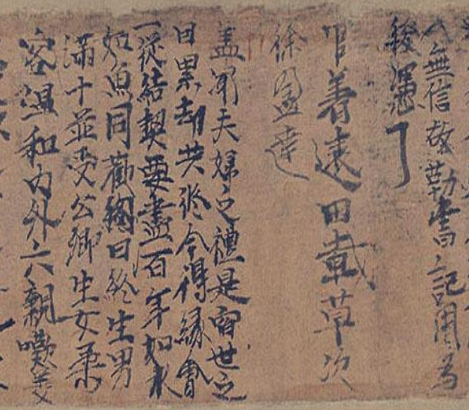 人無信故勒書記用為
後憑了
善遠田載草次
徐盈達
盖聞夫婦之禮是宿世之
因累劫共修今得緣會
一從結契要盡百年如水
如魚同歡終日生男
滿十並受公卿生女柔
容溫和內外六親歡美